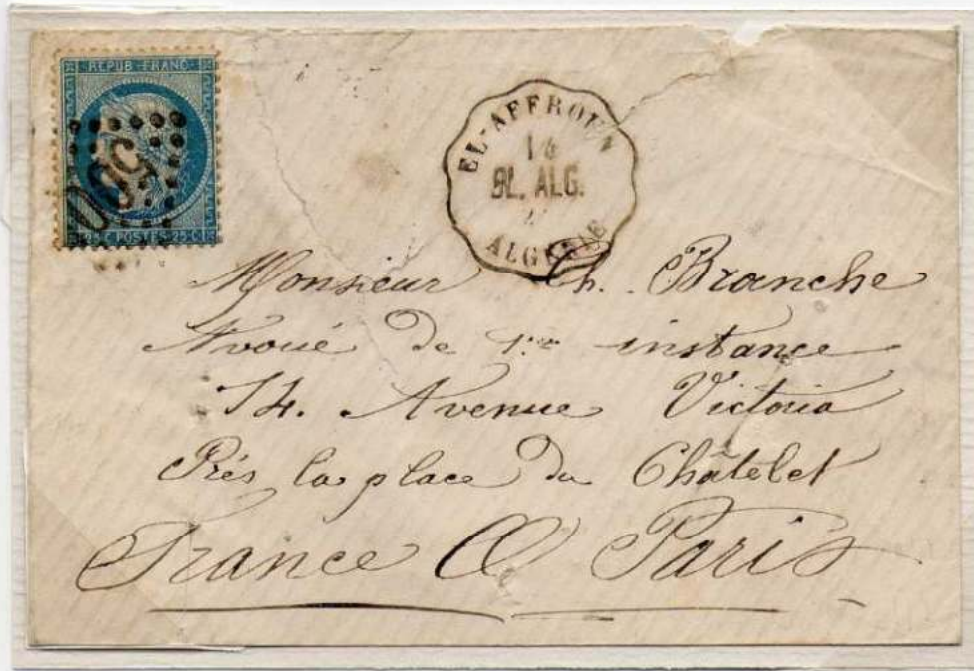 REPUB. FRANC.
25 C. POSTES 25 C.
EL-AFFROUN
BL. ALG.
ALGERIE
Monsieur Ch. Branche
Avoué de 1re instance
14. Avenue Victoria
Près la place du Châtelet
France à Paris